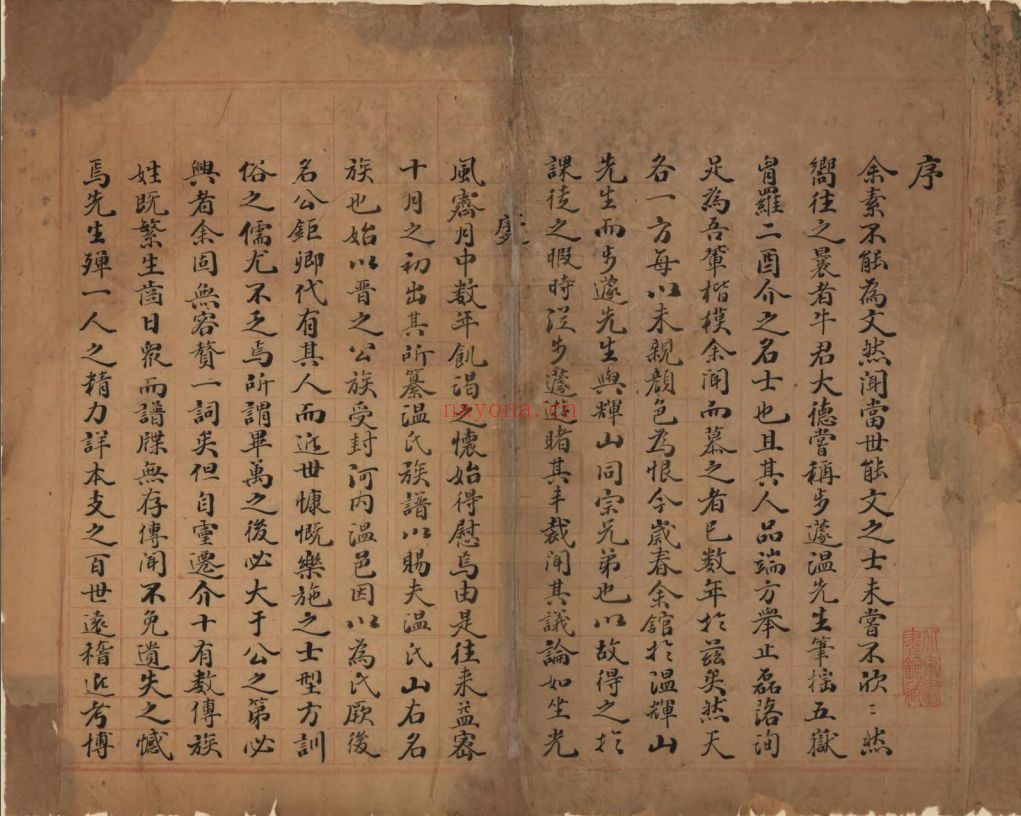 序
余素不能為文然闻當世能文之士未嘗不欣〻然
嚮往之曩者牛君大德嘗稱步蘧温先生筆摇五嶽
胷羅二酉介之名士也且其人品端方舉止磊落洵
足為吾輩楷模余闻而慕之者已数年於兹矣然天
各一方每以未親顔色為恨今歲春余舘於温輝山
先生而步蘧先生與輝山同宗兄弟也以故得之於
課徒之暇時從步蘧遊睹其丰裁闻其議論如坐光
序
風霽月中数年飢渴之懷始得慰焉由是往来益密
十月之初出其所纂温氏族譜以賜夫温氏山右名
族也始以晋之公族受封河内温邑因以為氏厥後
名公鉅卿代有其人而近世慷慨樂施之士型方訓
俗之儒尤不乏焉所謂畢萬之後必大于公之第必
興者余固無容贅一詞矣但自靈遷介十有数傳族
姓既繁生齒日衆而譜牒無存傳闻不免遺失之憾
焉先生殫一人之精力詳本支之百世遠稽近考博
nayona.cn